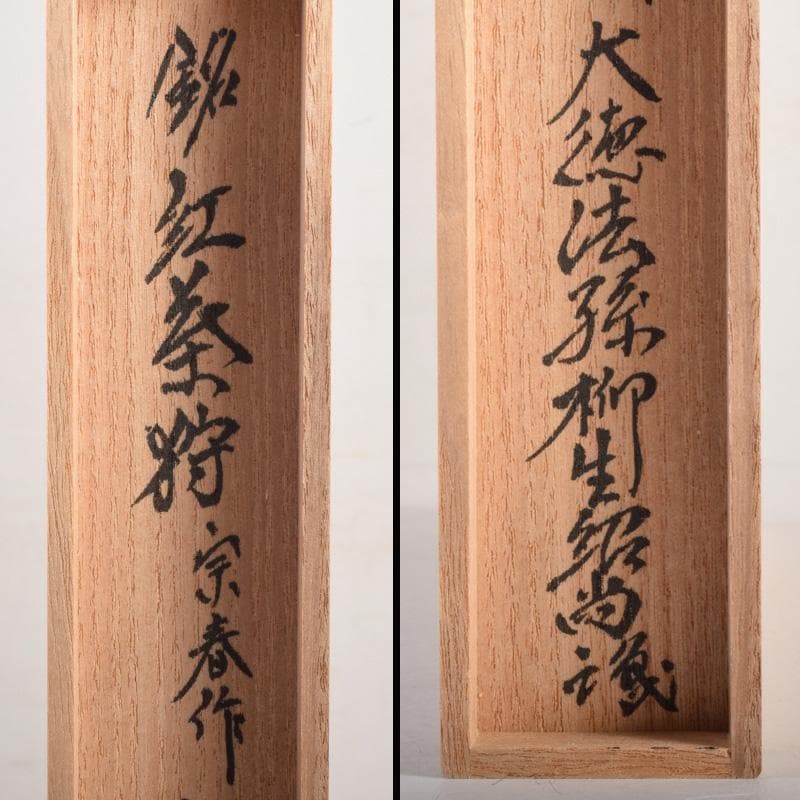 銘 紅葉狩
宗春作
大徳法孫柳生紹尚識